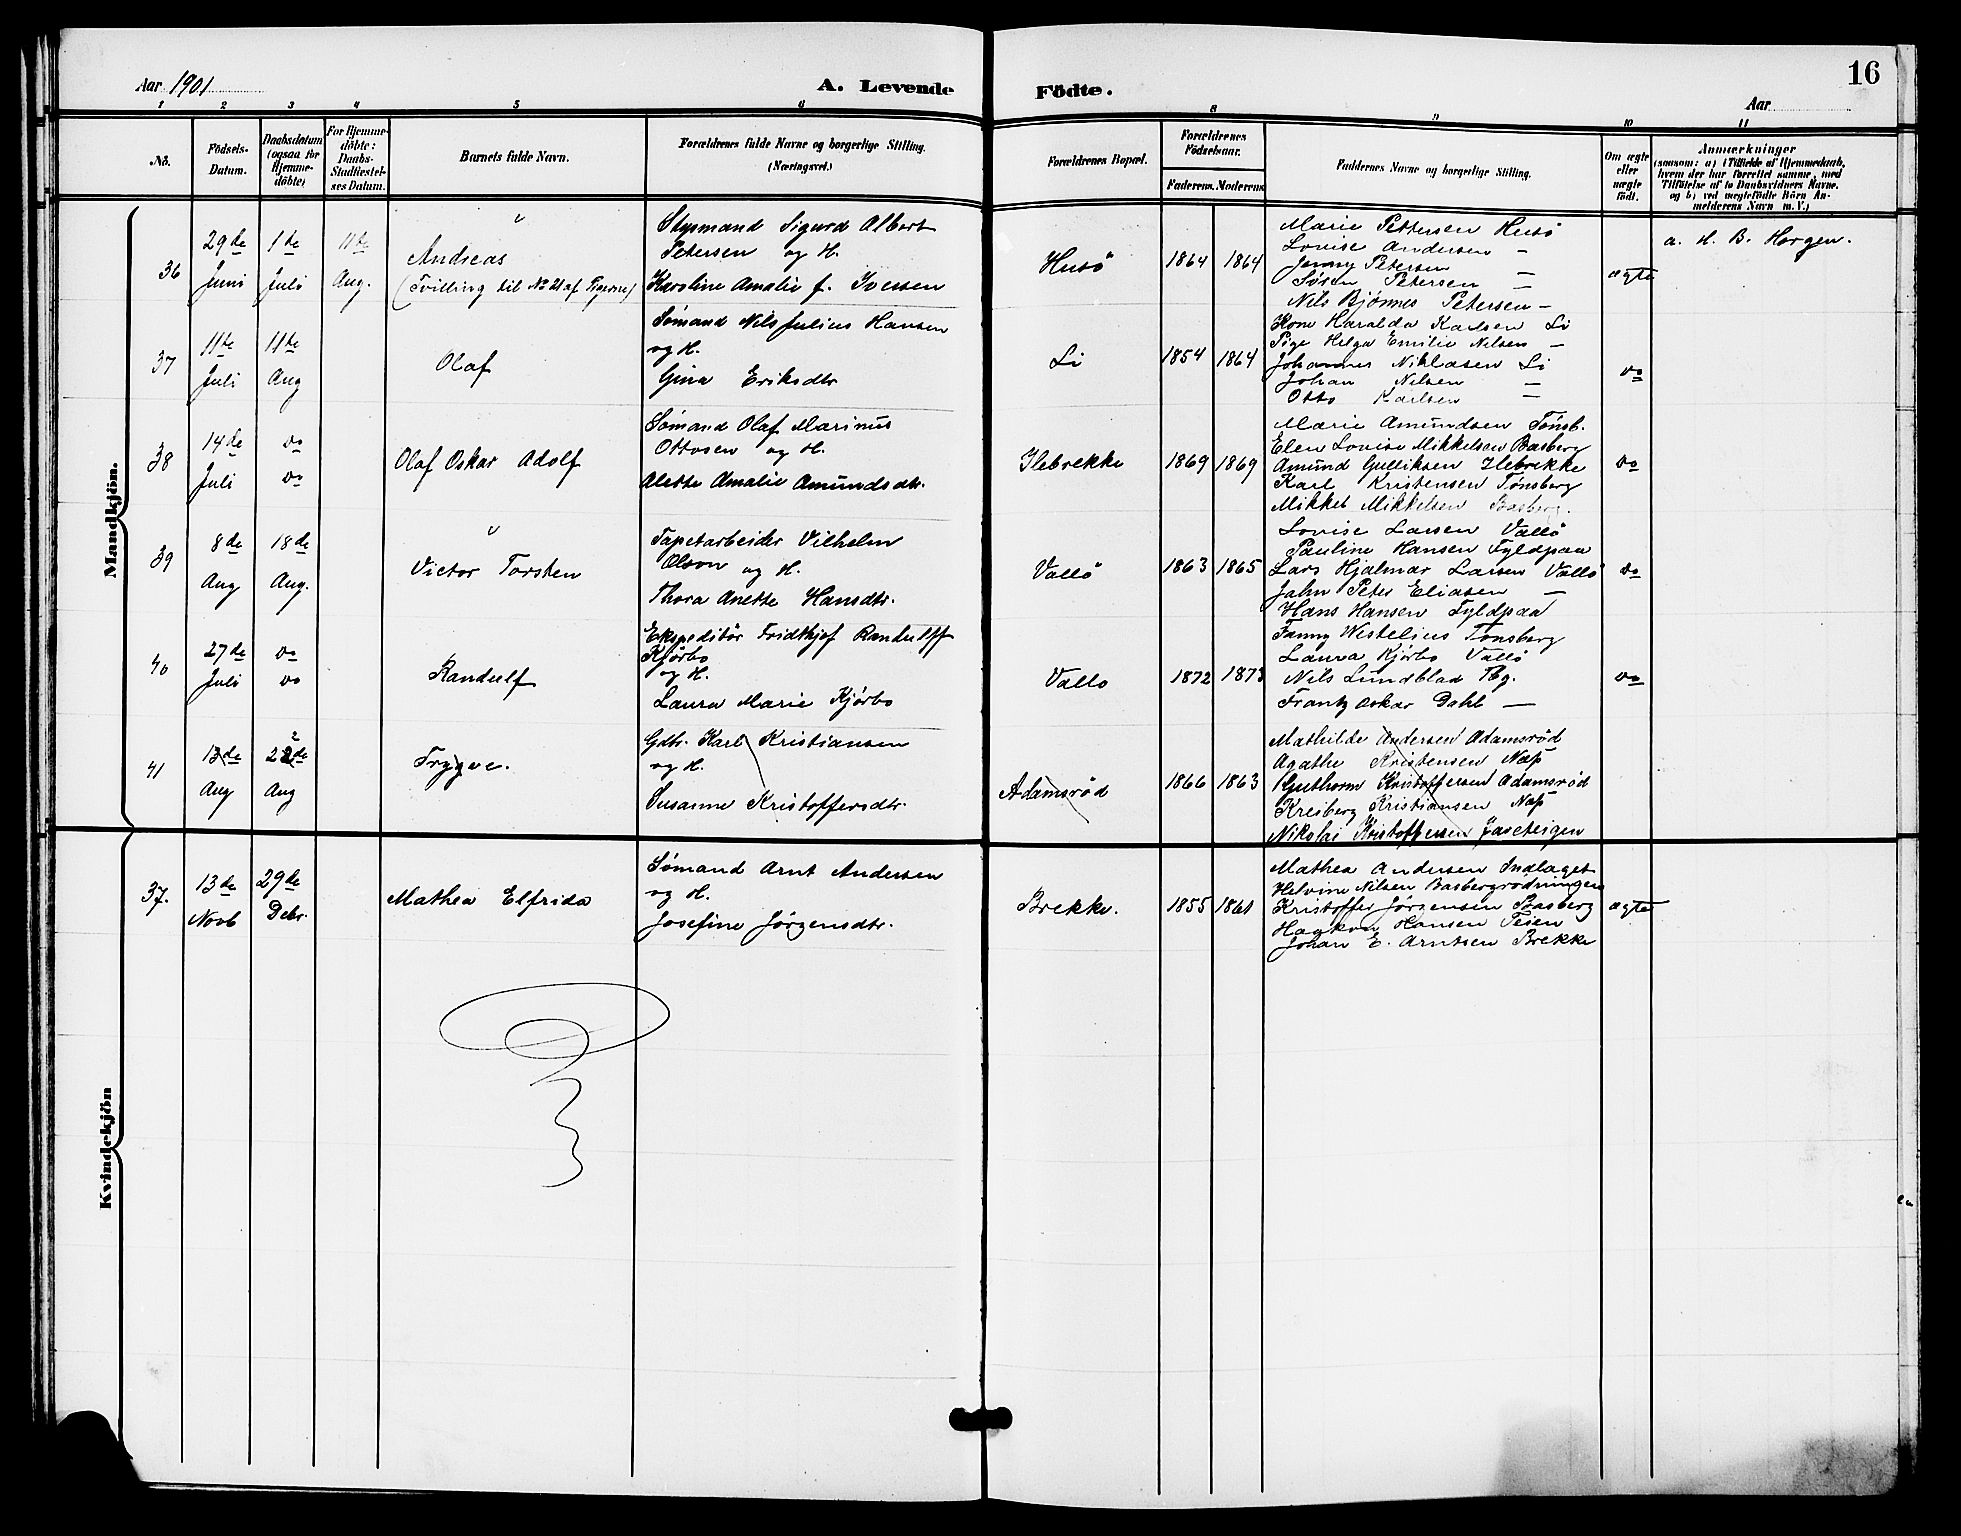 Aar 1901
A. Levende
Födte.
16
Aar
1 2 3 4 5 6 8 9 10 11
No.
Födsels-
Datum.
Daabsdatum
(ogsaa for
Hjemme-
döbte)
For Hjemme-
döbte:
Daabs-
Stadfæstel-
ses Datum.
Barnets fulde Navn.
Forældrenes fulde Navne og borgerlige Stilling.
(Næringsvei.)
Forældrenes Bopæl.
Forældrenes
Födselsaar.
Faderens. Moderens.
Faddernes Navne og borgerlige Stilling.
Om ægte
eller
uægte
födt.
Anmærkninger
(saasom: a) i Tilfælde af Hjemmedaab,
hvem der har forrettet samme, med
Tilföielse af to Daabsvidners Navne.
og b) ved uægtefödte Börn An-
melderens Navn m. V.)
Mandkjön.
36
29de
Juni
1te
Juli
11te
Aug.
Andreas
(Tvilling til No 21 af Pigerne)
Styrmand Sigurd Albert
Petersen og H.
Karoline Amalie f. Iversen
Husö
1864 1864
Marie Pettersen Husö
Lovise Andersen -
Jenny Petersen -
Søren Petersen -
Nils Bjönnes Petersen -
ægte
a. H. B. Horgen.
37
11te
Juli
11te
Aug
Olaf
Sømand Nils Julius Hansen
og H.
Gina Eriksdtr
Li
1854 1864
Kone Haralda Karlsen Li
Pige Helga Emilie Nilsen -
Johannes Niklasen Li
Johan Nilsen -
Otto Karlsen -
do
38
14de
Juli
do
do
Olaf Oskar Adolf
Sømand Olaf Marinus
Ottosen og H.
Alette Amalie Amundsdtr.
Ilebrekke
1869 1869
Marie Amundsen Tønsb.
Elen Lovise Mikkelsen Basberg
Amund Gulliksen Ilebrekke
Karl Kristensen Tønsberg
Mikkel Mikkelsen Basberg.
do
39
8de
Aug
18de
Aug.
Victor Torsten
Tapetarbeider Vilhelm
Olson og H.
Thora Anette Hansdtr.
Vallö
1863 1865
Lovise Larsen Vallö
Pauline Hansen Fyldpaa
Lars Hjalmar Larsen Vallö
Jahn Peter Eliasen -
Hans Hansen Fyldpaa
do
40
27de
Juli
do
do
Randulf
Ekspeditör Fridthjof Randulff
Kjörbo
og H.
Laura Marie Kjörbo
Vallo
1872 1873
Fanny Westelius Tønsberg
Laura Kjörbo Vallö
Nils Lundblad Tbg.
Frantz Oskar Dahl -
do
41
13de
Aug
22de
Aug
Trygve.
Gdbr. Karl Kristiansen
og H.
Susanne Kristoffersdtr.
Adamsröd
1866 1863
Mathilde Andersen Adamsröd
Agathe Kristensen Næs
Guthorm Kristoffersen Adamsröd
Kreiberg Kristiansen Næs
Nikolai Kristoffersen
Kvindekjön
37.
13de
Novb
29de
Debr.
Mathea Elfrida
Sømand Arnt Andersen
og H.
Josefine Jörgensdtr.
Brekke.
1855 1861
Mathea Andersen Indlaget
Helvine Nilsen Basbergrødningen
Kristoffer Jörgensen Basberg
Haakon Hansen Teien
Johan E. Arntsen Brekke
ægte